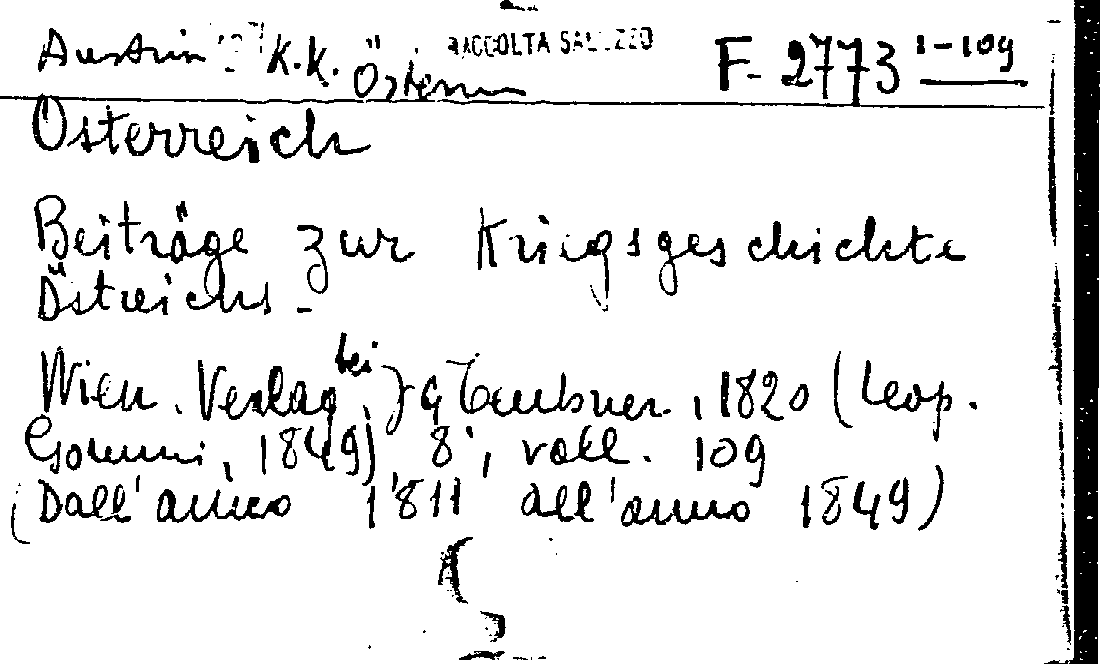 Austria K.K. Österr RACCOLTA SALUZZO F- 2773 1-109
Österreich
Beiträge zur Kriegsgeschichte
Östreichs -
Wien. Verlag bei J G Teubner, 1820 (Leop.
1849) 8°, voll. 109
(Dall'anno 1811 all'anno 1849)